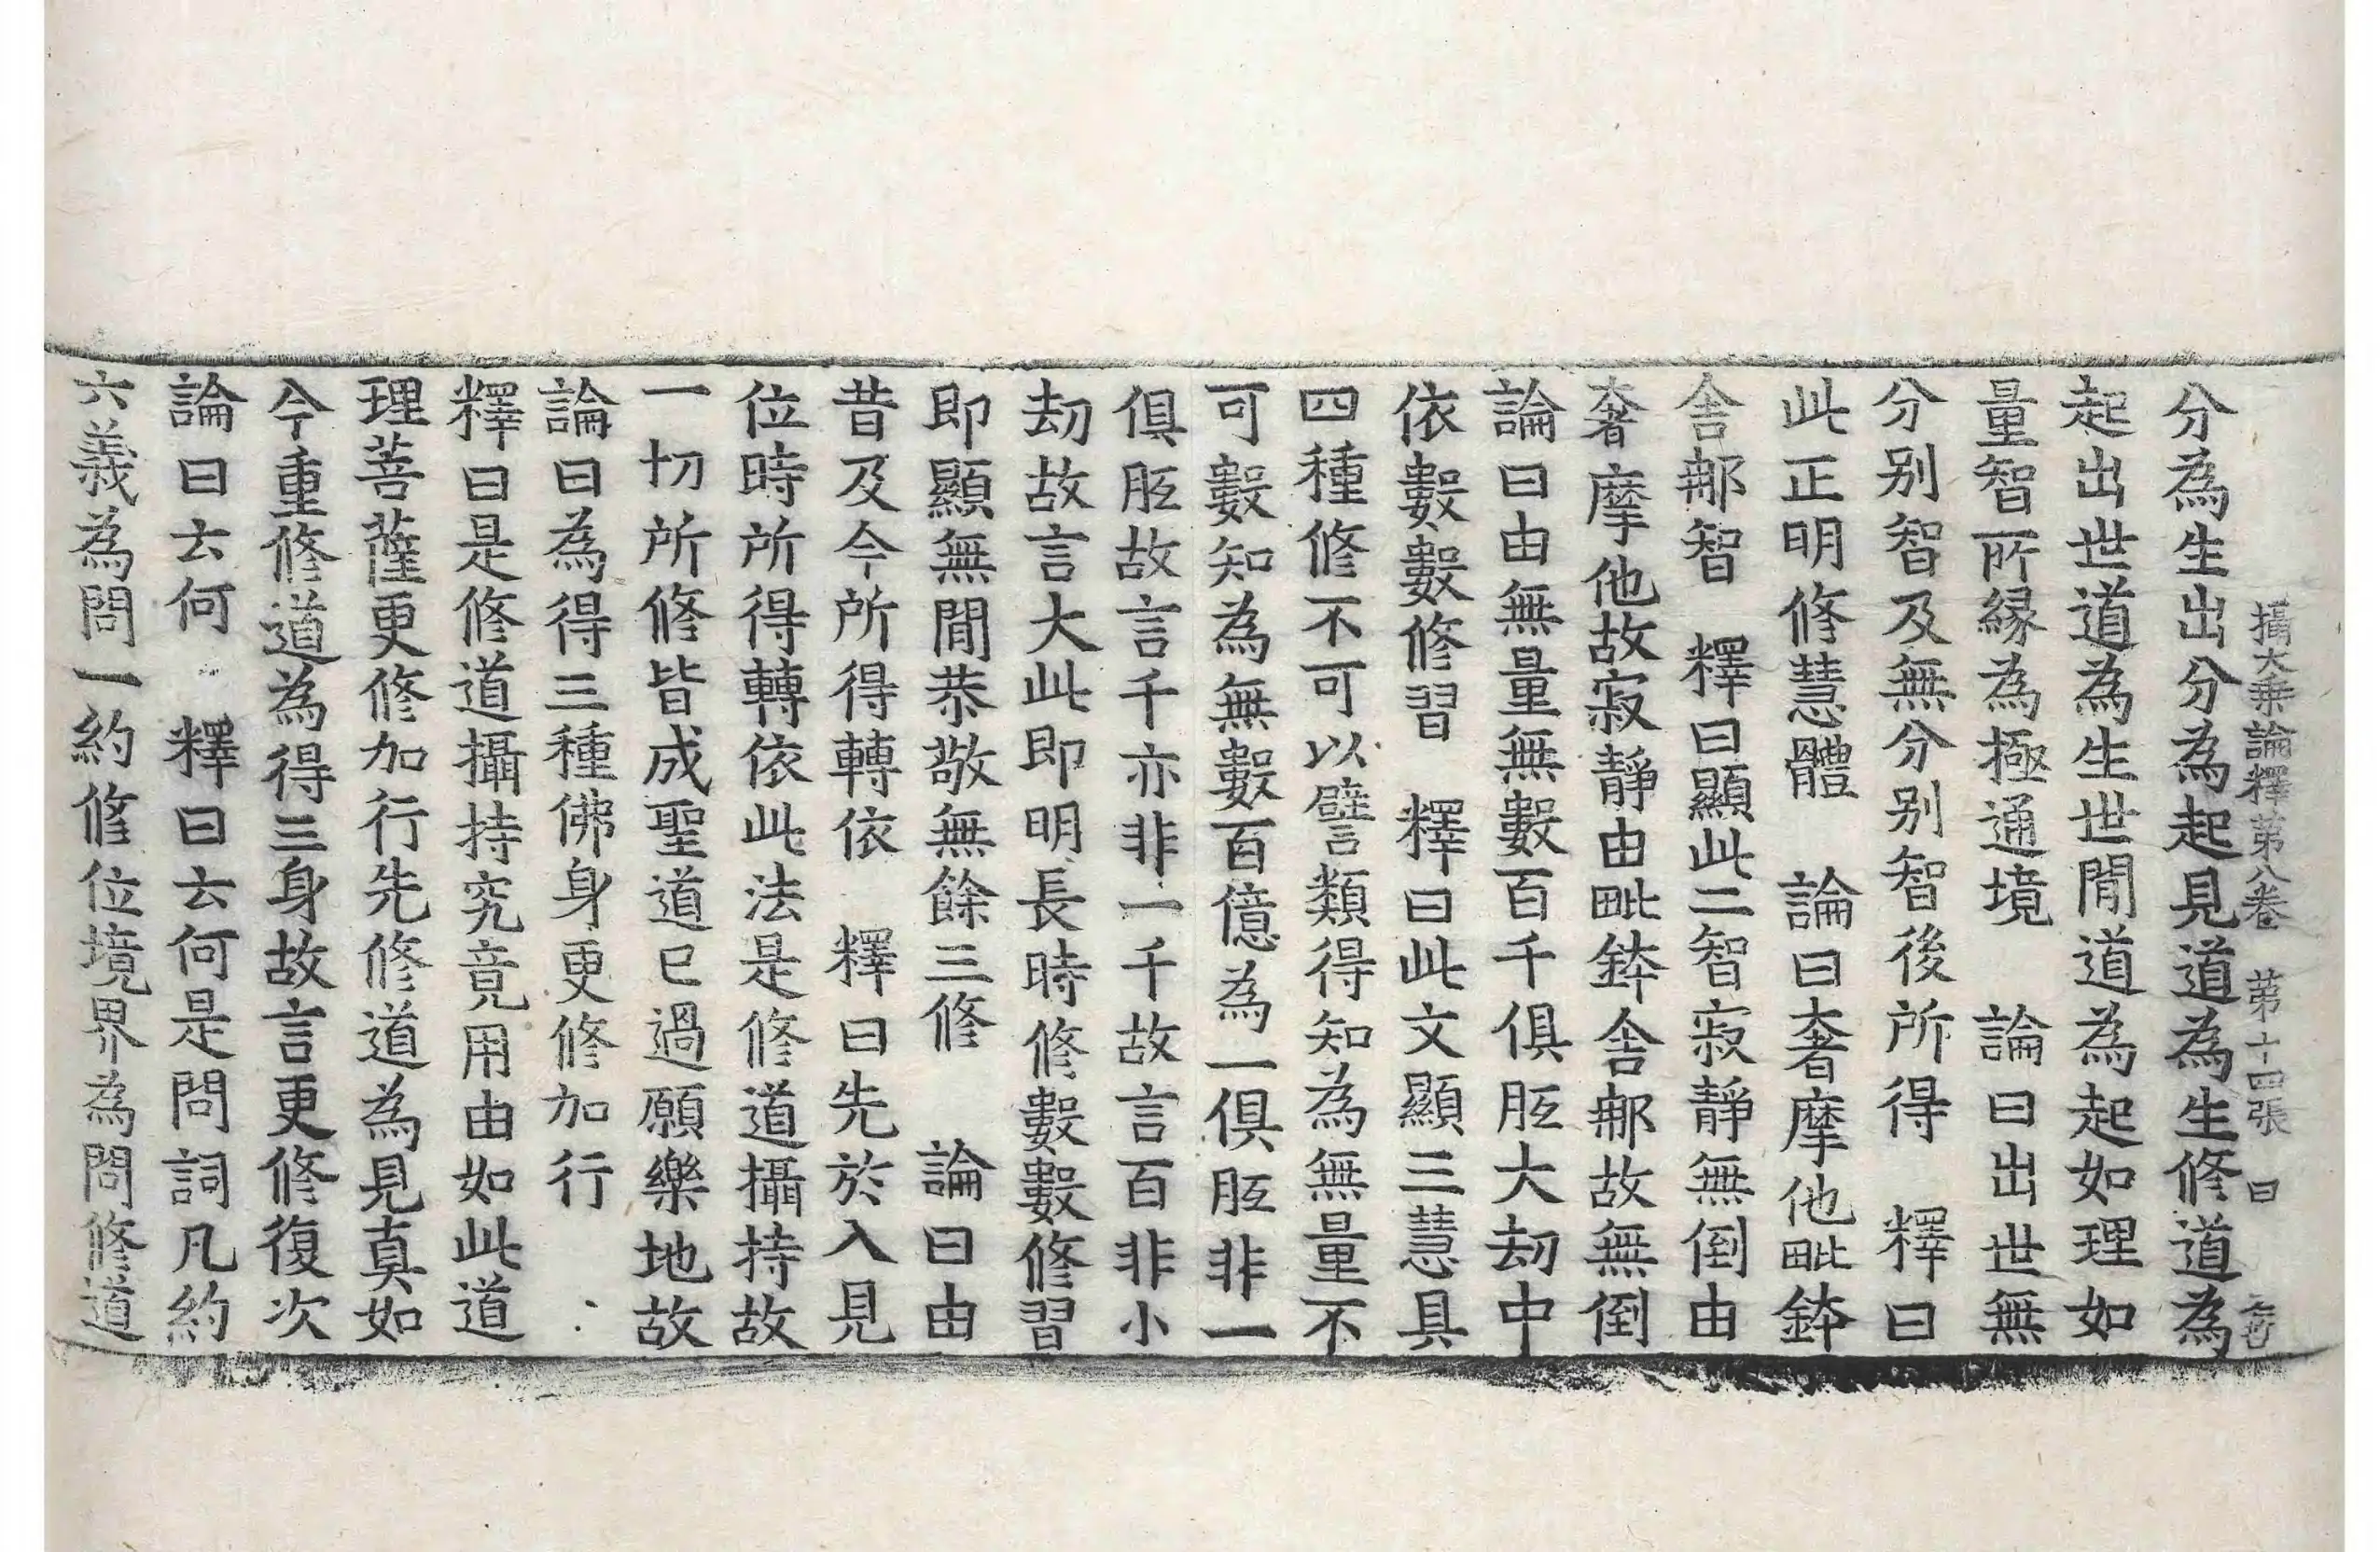 攝大乘論釋第八卷　第十四張　曰
分為生出分為起見道為生修道為
起出世道為生世閒道為起如理如
量智所縁為極通境　論曰出世無
分别智及無分别智後所得　釋曰
此正明修慧體　論曰奢摩他毗鉢
舍郍智　釋曰顯此二智寂靜無倒由
奢摩他故寂靜由毗鉢舍郍故無倒
論曰由無量無數百千俱胝大劫中
依數數修習　釋曰此文顯三慧具
四種修不可以譬類得知為無量不
可數知為無數百億為一俱胝非一
俱胝故言千亦非一千故言百非小
劫故言大此即明長時修數數修習
即顯無閒恭敬無餘三修　論曰由
昔及今所得轉依　釋曰先於入見
位時所得轉依此法是修道攝持故
一切所修皆成聖道已過願樂地故
論曰為得三種佛身更修加行
釋曰是修道攝持究竟用由如此道
理菩薩更修加行先修道為見真如
今重修道為得三身故言更修復次
論曰云何　釋曰云何是問詞凡約
六義為問一約修位境界為問修道